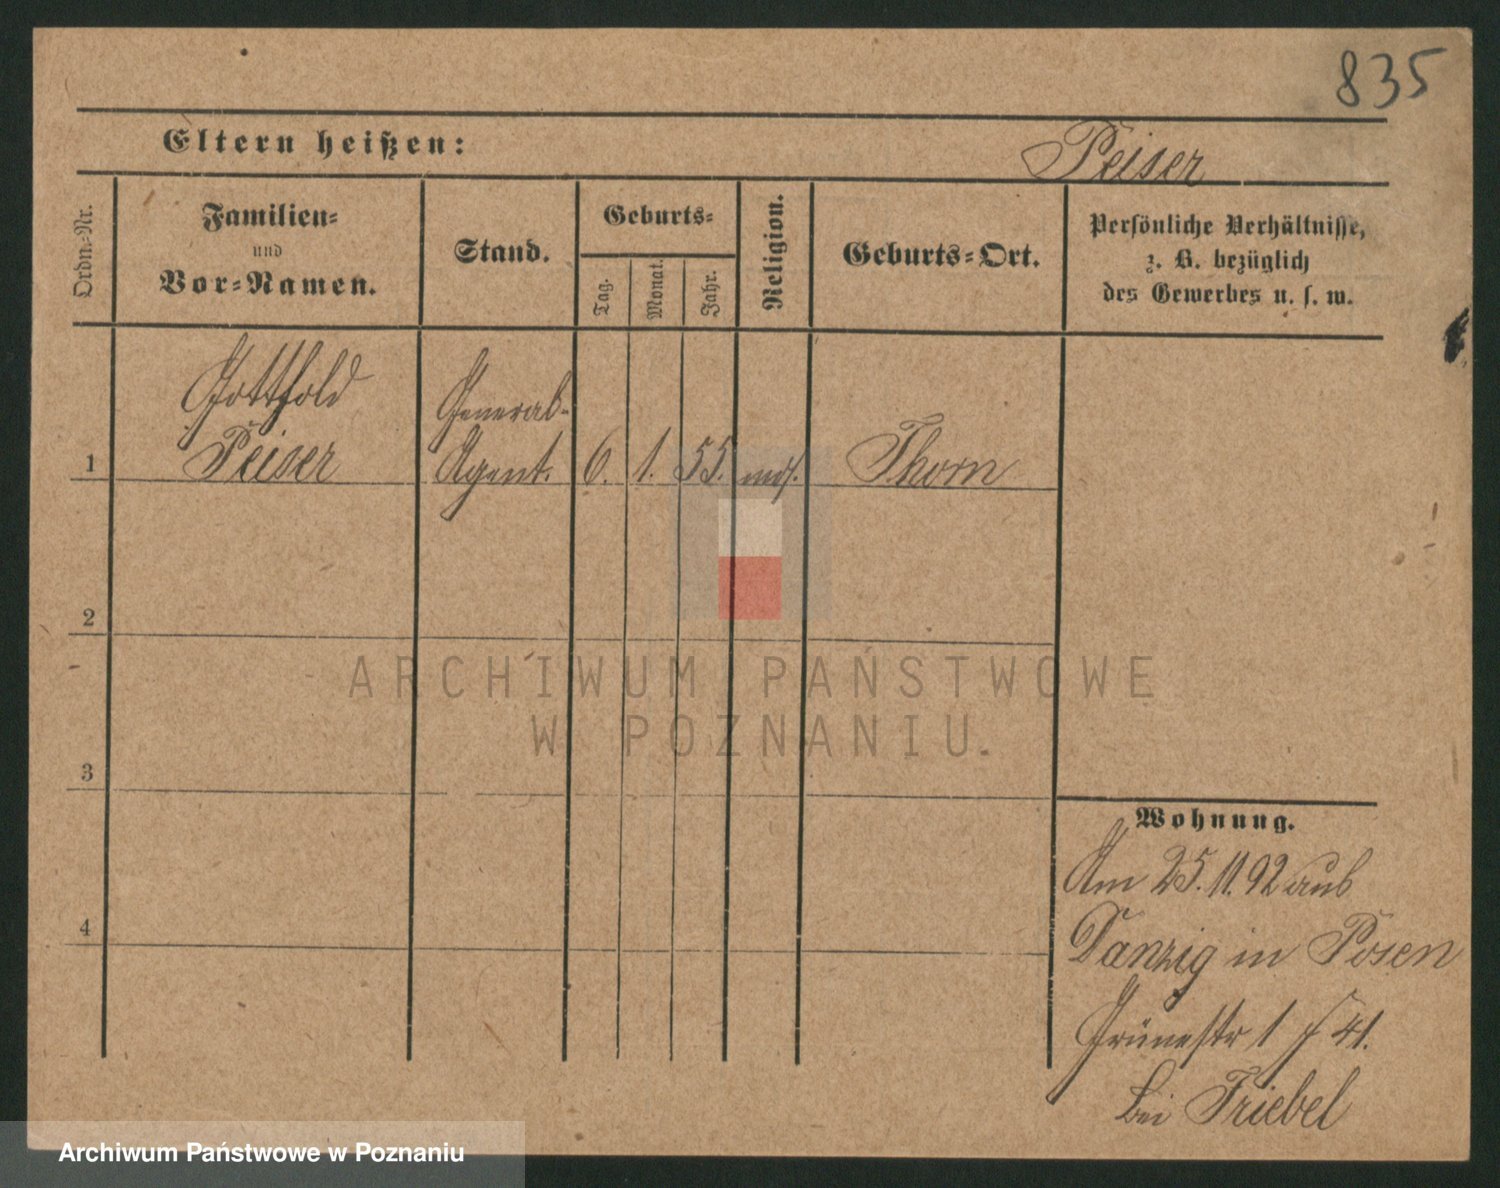 835
Eltern heißen:
Peiser
Ordn.-Nr.
Familien-
und
Vor-Namen.
Stand.
Geburts-
Tag.
Monat.
Jahr.
Religion.
Geburts-Ort.
Persönliche Verhältnisse,
z. B. bezüglich
des Gewerbes u. s. w.
Gotthold
Peiser
General-
Agent.
1
6.
1.
55.
mos.
Thorn
2
3
4
Wohnung.
Am 25.11.92 aus
Danzig in Posen
Grünestr 1 41.
bei Friebel
ARCHIWUM PAŃSTWOWE
W POZNANIU.
Archiwum Państwowe w Poznaniu